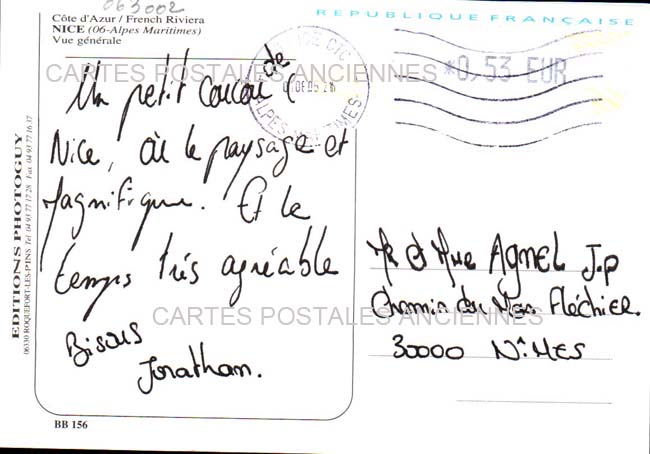 063002
Côte d'Azur / French Riviera
NICE (06-Alpes Maritimes)
Vue générale
REPUBLIQUE FRANÇAISE
*0,53 EUR
ALPES MARITIMES
CARTES POSTALES ANCIENNES
Un petit coucou de
Nice, où le paysage et
magnifique. Et le
temps très agréable
Bisous
Jonathan.
CARTES POSTALES ANCIENNES
Mr et Mme AGNEL J.P
Chemin du Mas Fléchier.
30000 NiMES
EDITIONS PHOTOGUY
06330 ROQUEFORT-LES-PINS Tél. 04 93 77 17 28 Fax 04 93 77 16 37
BB 156